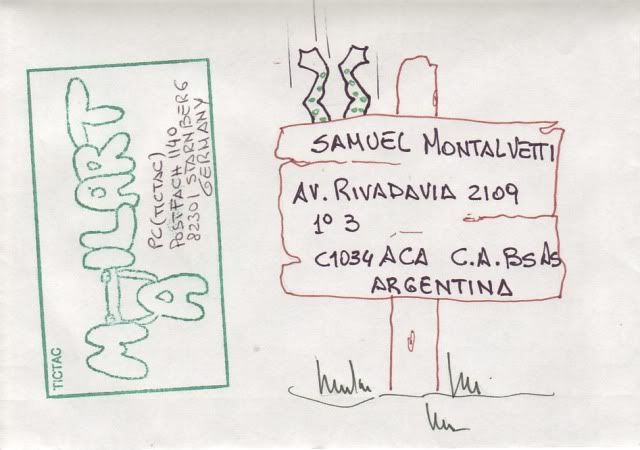 TICTAC
MAILART
PC (TICTAC)
POSTFACH 1140
82301 STARNBERG
GERMANY
SAMUEL MONTALVETTI
AV. RIVADAVIA 2109
1º 3
C1034ACA C.A.BsAs
ARGENTINA